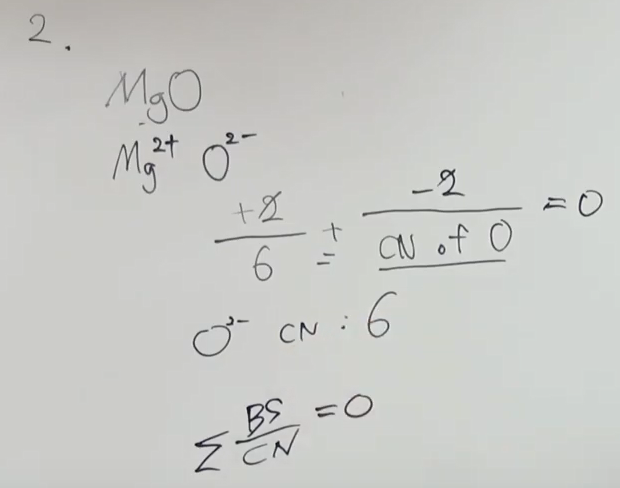 2.
MgO
Mg²⁺ O²⁻
+2/6 + = -2/CN of O = 0
O²⁻ CN : 6
Σ BS/CN = 0